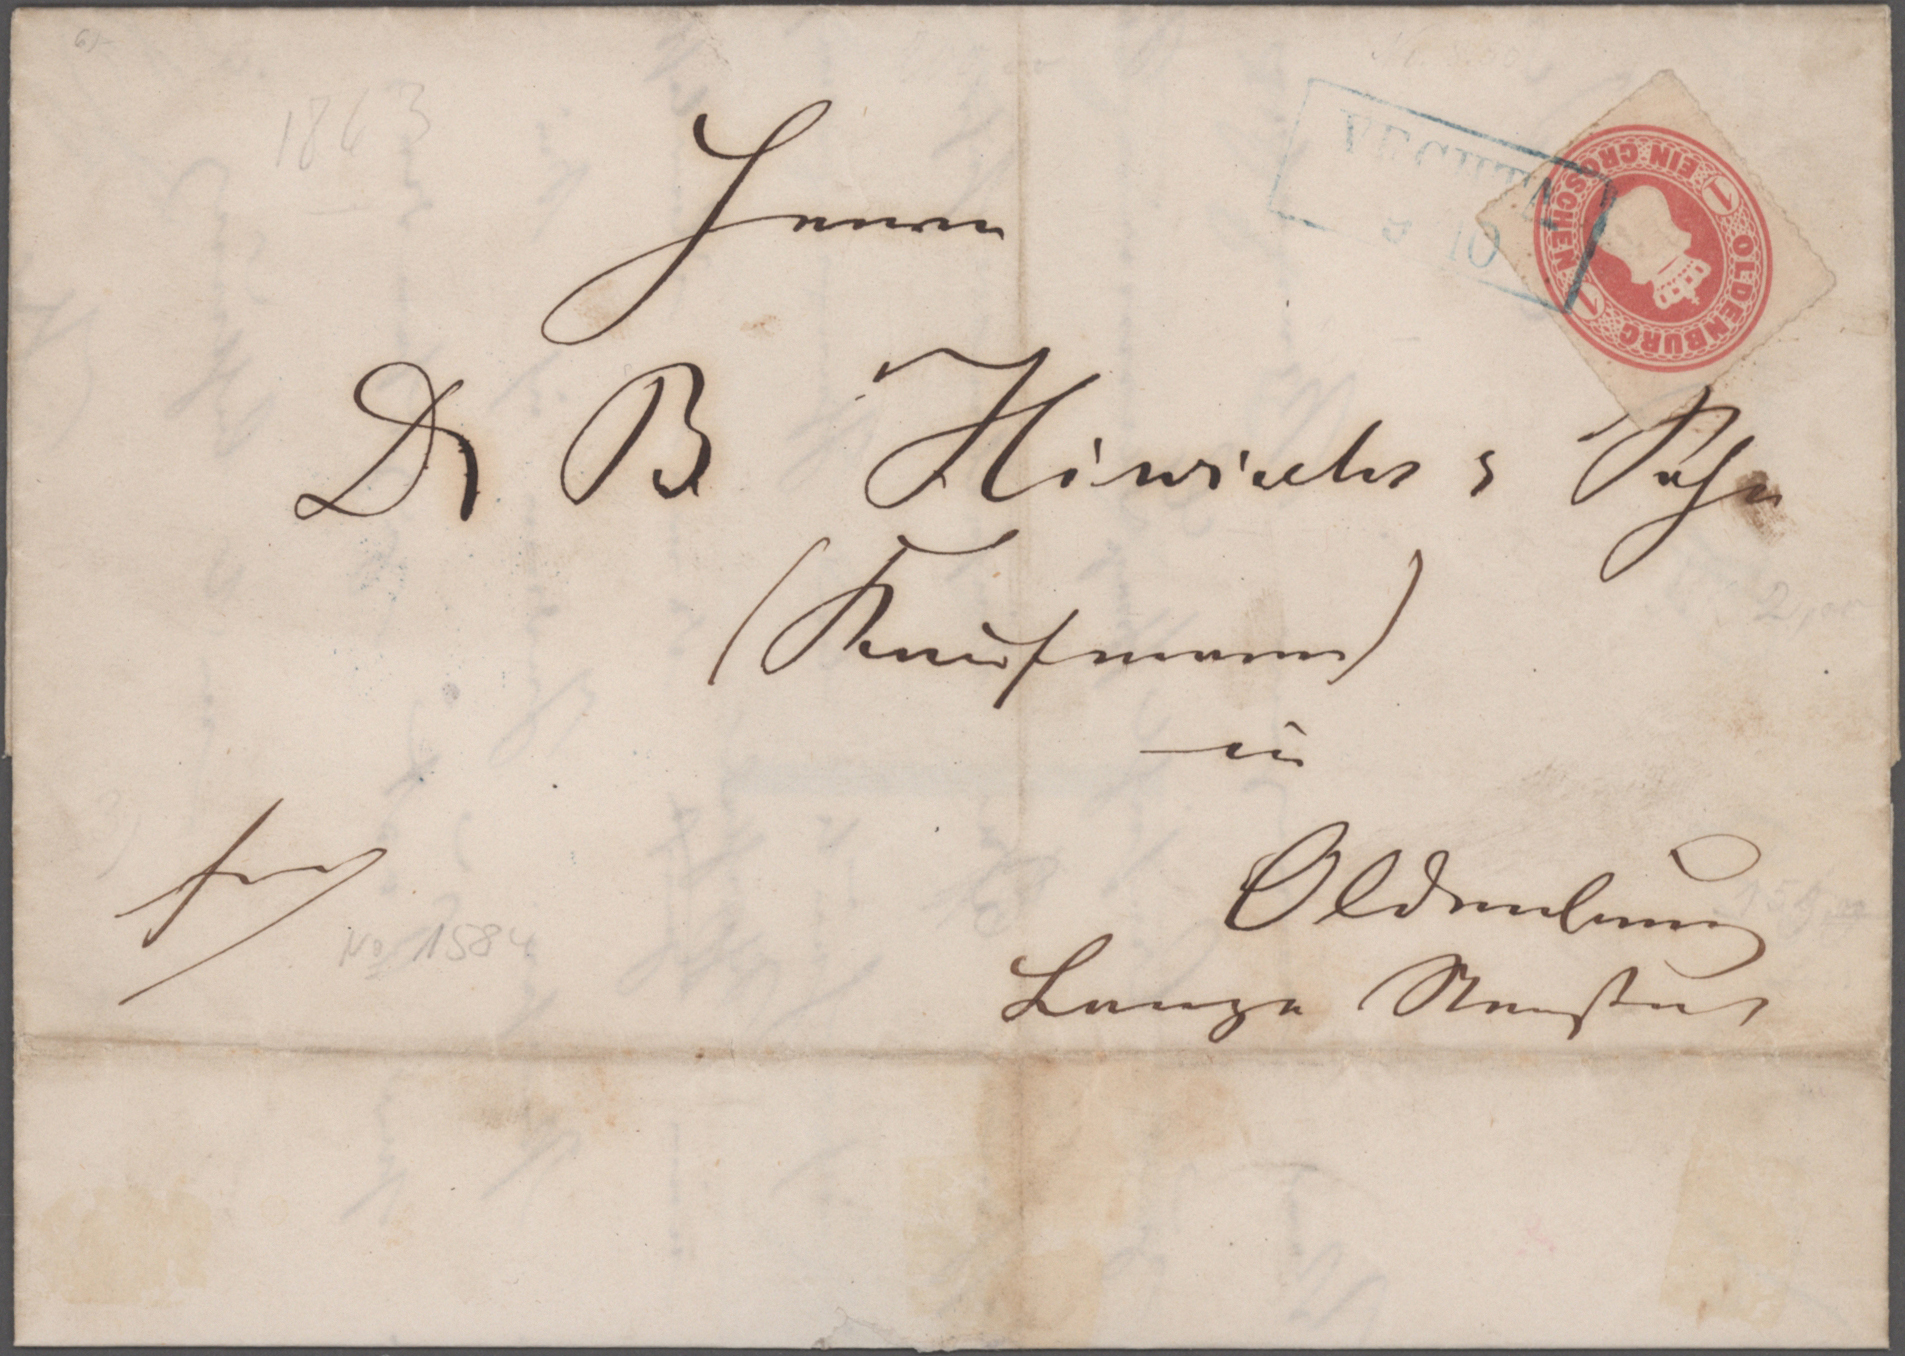 1863
VECHTA
2 10
OLDENBURG
1 EIN GROSCHEN 1
Herrn
D B Hinrichs & Sohn
(Kaufmann)
in
Oldenburg
Lange Straße
No 1584